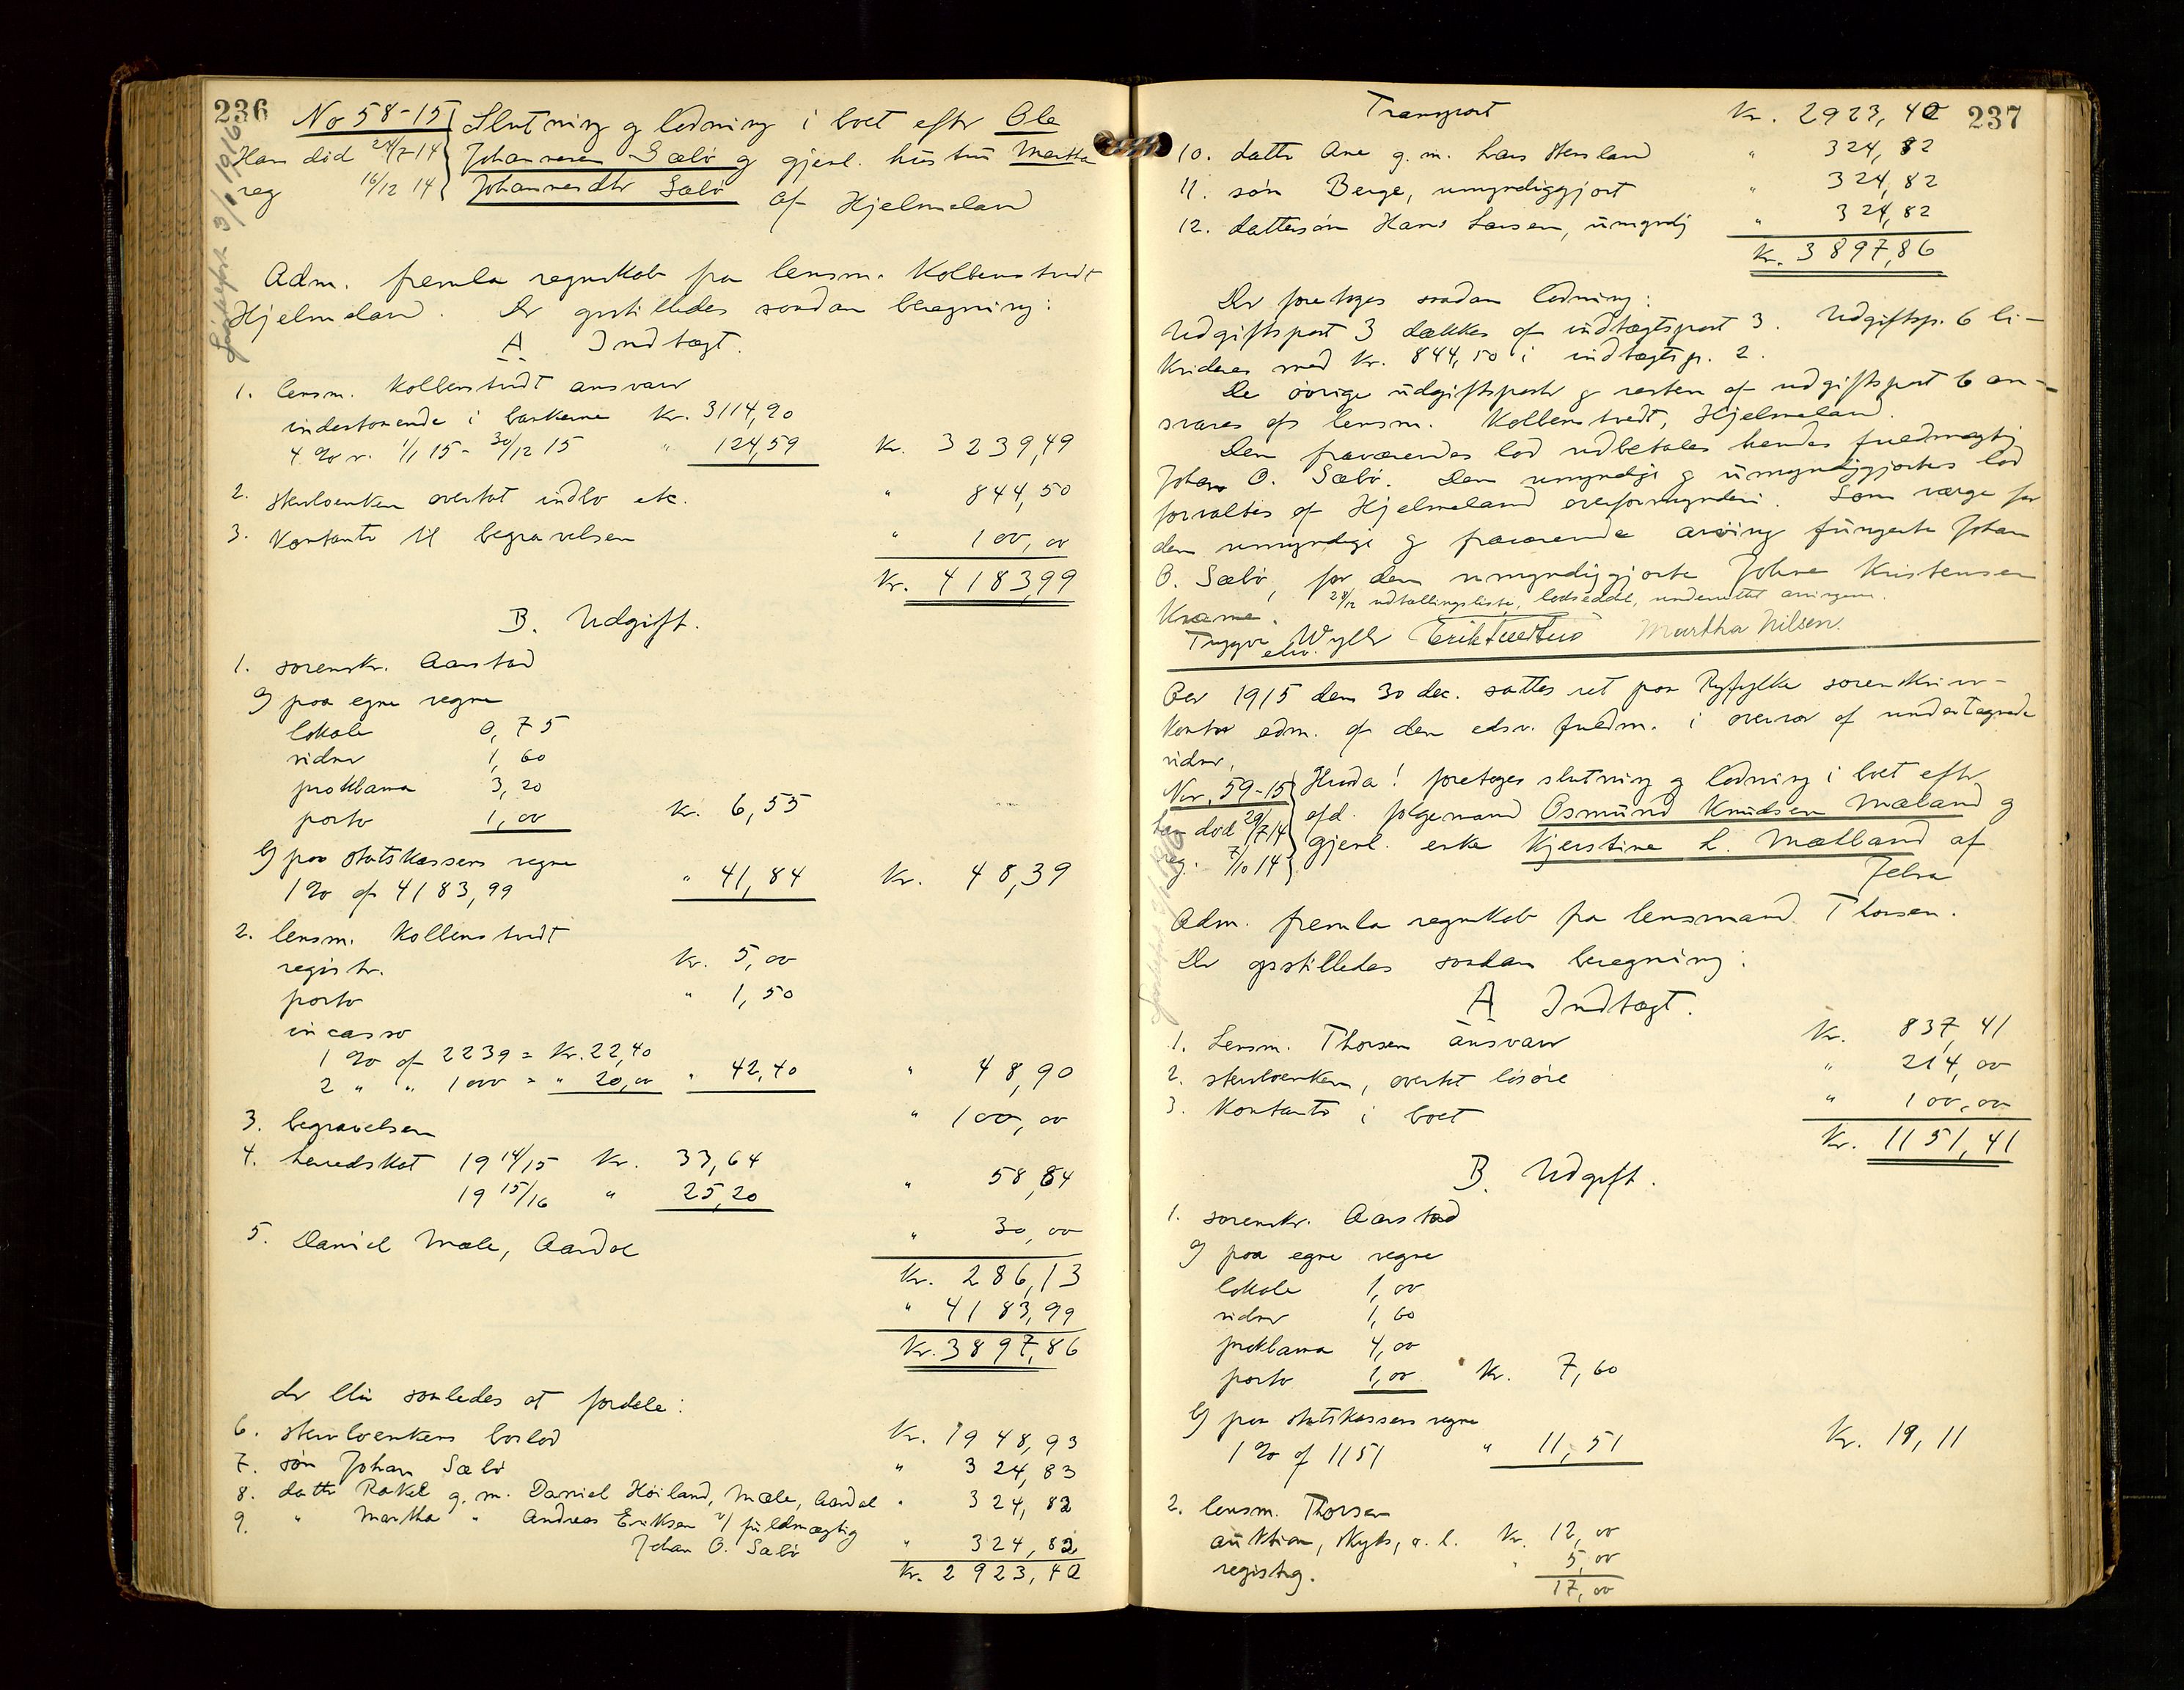 236
No 58-15 Slutning g lodning i boet efter Ole
Han död 24/7-14 Johannesen Sælö g gjenl. hustru Martha
reg 16/12 14 Johannesdtr Sælö af Hjelmeland
3/1 1916
Adm. fremla regnskab fra lensm. Kolbenstvedt
Hjelmeland. Der opstilledes saadan beregning:
A Indtægt.
1. lensm. Kolbenstvedt ansvarer
indestaaende i bankerne Kr. 3114,90
4 % r. 1/1 15 - 30/12 15 " 124,59 Kr. 3239,49
2. Stervboenken overtat indbo etc. " 844,50
3. Kontanter til begravelsen " 100,00
Kr. 4183,99
B. Udgift.
1. sorenskr. Aarstad
a) paa egne vegne
lokale 0,75
vidner 1,60
proklama 3,20
porto 1,00 Kr. 6,55
b) paa Statskassens vegne
1 % af 4183,99 " 41,84 Kr. 48,39
2. lensm. Kolbenstvedt
registr. Kr. 5,00
porto " 1,50
incasso
1 % af 2239 = Kr. 22,40
2 " " 1000 = " 20,00 " 42,40 " 48,90
3. begravelsen " 100,00
4. herredskat 19 14/15 Kr. 33,64
19 15/16 " 25,20 " 58,84
5. Daniel Mæle, Aardal " 30,00
Kr. 286,13
" 4183,99
Kr. 3897,86
der blir saaledes at fordele:
6. stervboenkens boslod Kr. 1948,93
7. søn Johan Sælö " 324,83
8. datter Rakel g. m. Daniel Höiland, Mæle, Aardal " 324,82
9. " Martha " Andreas Eriksen v/ fuldmægtig
Johan O. Sælö " 324,82
Kr. 2923,40
237
Transport Kr. 2923,40
10. datter Ane g. m. Lars Stensland " 324,82
11. søn Berge, umyndiggjort " 324,82
12. dattersøn Hans Larsen, umyndig " 324,82
Kr. 3897,86
Der foretoges saadan lodning:
Udgiftspost 3 dækkes af indtægtspost 3. Udgiftsp. 6 li-
kvideres med Kr. 844,50 i indtægtsp. 2.
De övrige udgiftsposter g resten af udgiftspost 6 an-
svares af lensm. Kolbenstvedt, Hjelmeland.
Den fraværendes lod udbetales hendes fuldmægtig
Johan O. Sælö. Den umyndige g umyndiggjortes lod
forvaltes af Hjelmeland overformynderi. Som værge for
den umyndige g fraværende arving fungerte Johan
O. Sælö, for den umyndiggjorte Johan Kristensen
Kvame. 28/12 udtællingsliste, lodseddel, underrettet arvingerne.
Trygve Wyller Martha Nilsen.
edsv.
Aar 1915 den 30 dec. sattes ret paa Ryfylke sorenskriver-
kontor adm. af den edsv. fuldm. i overvær af undertegnede
vidner,
Nr. 59-15 Hvda! foretoges slutning g lodning i boet efter
han död 29/7 14 afd. folgemand Osmund Knudsen Mæland g
reg. 7/10 14 gjenl. enke Kjerstine L. Mælland af
Jelsa
Adm. fremla regnskab fra lensmand Thorsen.
Der opstilledes saadan beregning:
A Indtægt.
1. Lensm. Thorsen ansvarer Kr. 837,41
2. stervboenken, overtat lösöre " 214,00
3. Kontanter i boet " 100,00
Kr. 1151,41
B. Udgift.
1. sorenskr. Aarstad
a) paa egne vegne
lokale 1,00
vidner 1,60
proklama 4,00
porto 1,00 Kr. 7,60
b) paa statskassens vegne
1 % af 1151 " 11,51 Kr. 19,11
2. lensm. Thorsen
auktion, skyds, o. l. Kr. 12,00
registrg. " 5,00
17,00